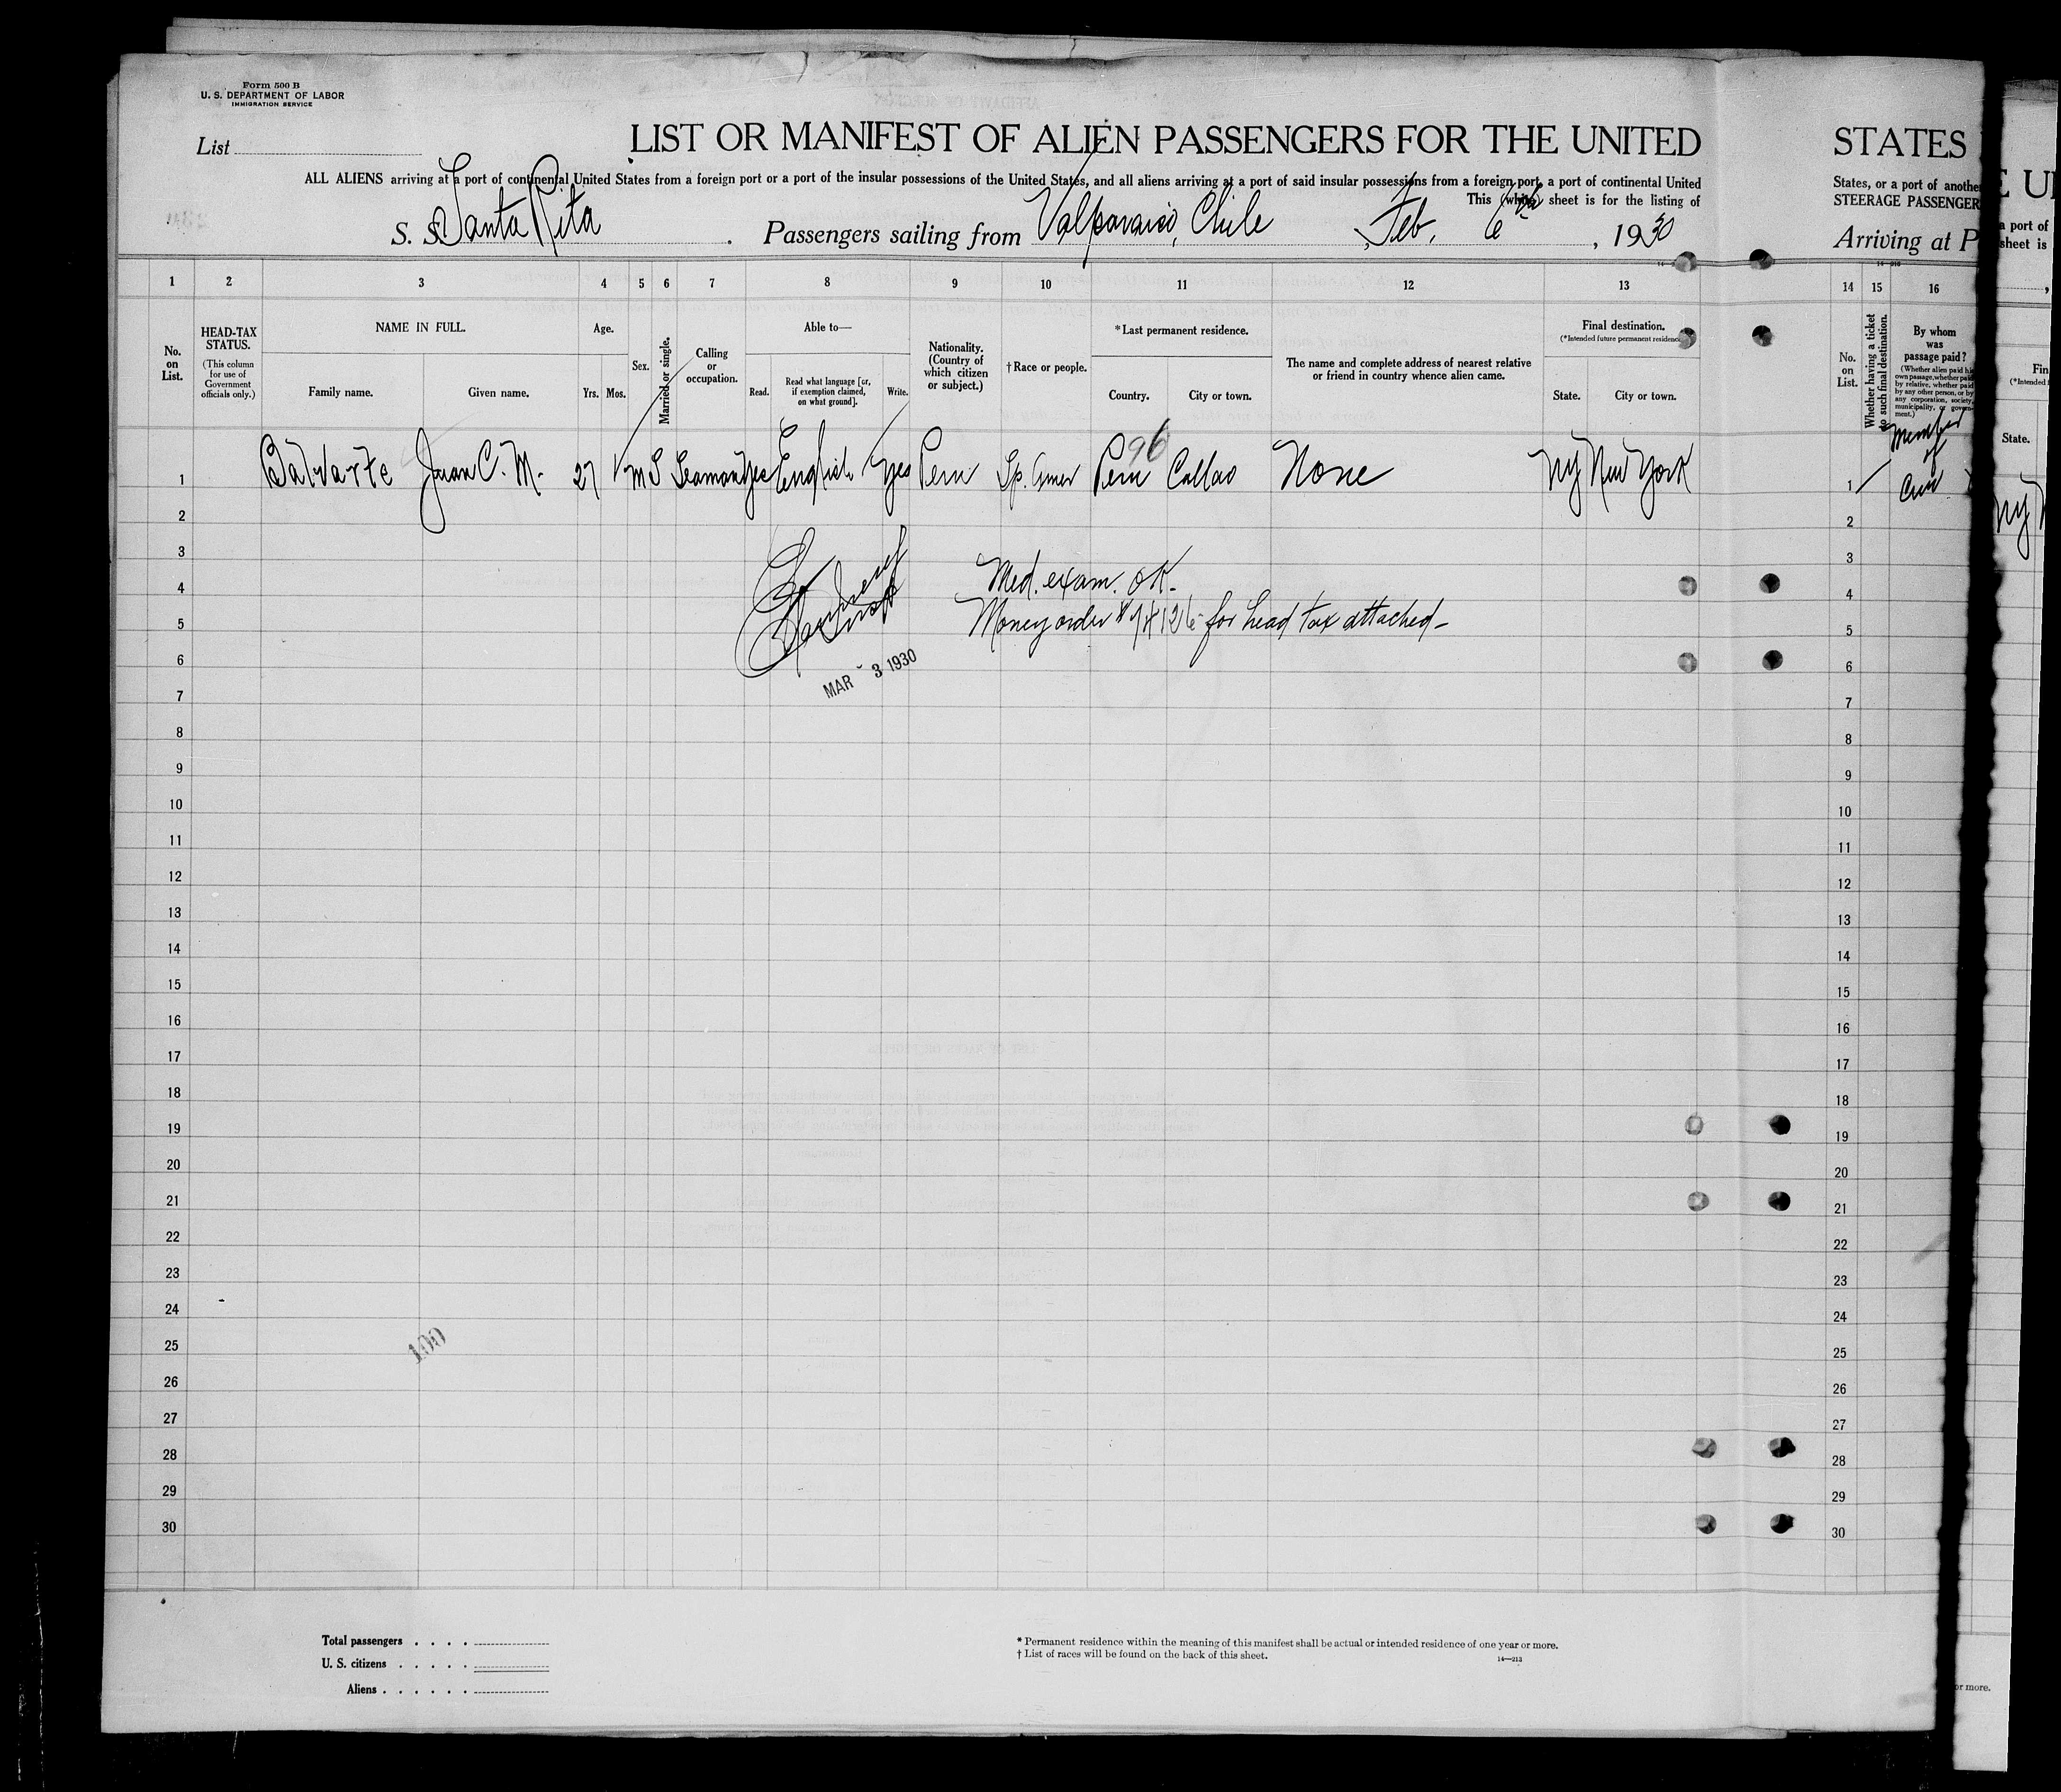 Form 500 B
U. S. DEPARTMENT OF LABOR
IMMIGRATION SERVICE
List
LIST OR MANIFEST OF ALIEN PASSENGERS FOR THE UNITED
ALL ALIENS arriving at a port of continental United States from a foreign port or a port of the insular possessions of the United States, and all aliens arriving at a port of said insular possessions from a foreign port, a port of continental United
This (white) sheet is for the listing of
S. S. Santa Rita. Passengers sailing from Valparaiso, Chile, Feb. 6th, 1930
1 2 3 4 5 6 7 8 9 10 11 12 13
No. on List.
HEAD-TAX STATUS.
(This column for use of Government officials only.)
NAME IN FULL.
Family name. Given name.
Age.
Yrs. Mos.
Sex.
Married or single.
Calling or occupation.
Able to—
Read. Read what language [or, if exemption claimed, on what ground]. Write.
Nationality. (Country of which citizen or subject.)
†Race or people.
*Last permanent residence.
Country. City or town.
The name and complete address of nearest relative or friend in country whence alien came.
Final destination.
(*Intended future permanent residence.)
State. City or town.
96
1 Juan C. M. 27 M S Seaman yes English yes Peru Sp. Amer Peru Callao None NY New York
2
3
4
5
6
7
8
9
10
11
12
13
14
15
16
17
18
19
20
21
22
23
24
25
26
27
28
29
30
Med. exam. OK-
Money order for head tax attached-
MAR 3 1930
100
Total passengers
U. S. citizens
Aliens
* Permanent residence within the meaning of this manifest shall be actual or intended residence of one year or more.
† List of races will be found on the back of this sheet.
14—213
STATES
States, or a port of another
STEERAGE PASSENGER
Arriving at P
14 15 16
No. on List.
Whether having a ticket to such final destination.
By whom was passage paid?
(Whether alien paid his own passage, whether paid by relative, whether paid by any other person, or by any corporation, society, municipality, or government.)
1 Member of Crew
2
3
4
5
6
7
8
9
10
11
12
13
14
15
16
17
18
19
20
21
22
23
24
25
26
27
28
29
30
E U
a port of
sheet is
Fin
(*Intended f
State.
NY
or more.